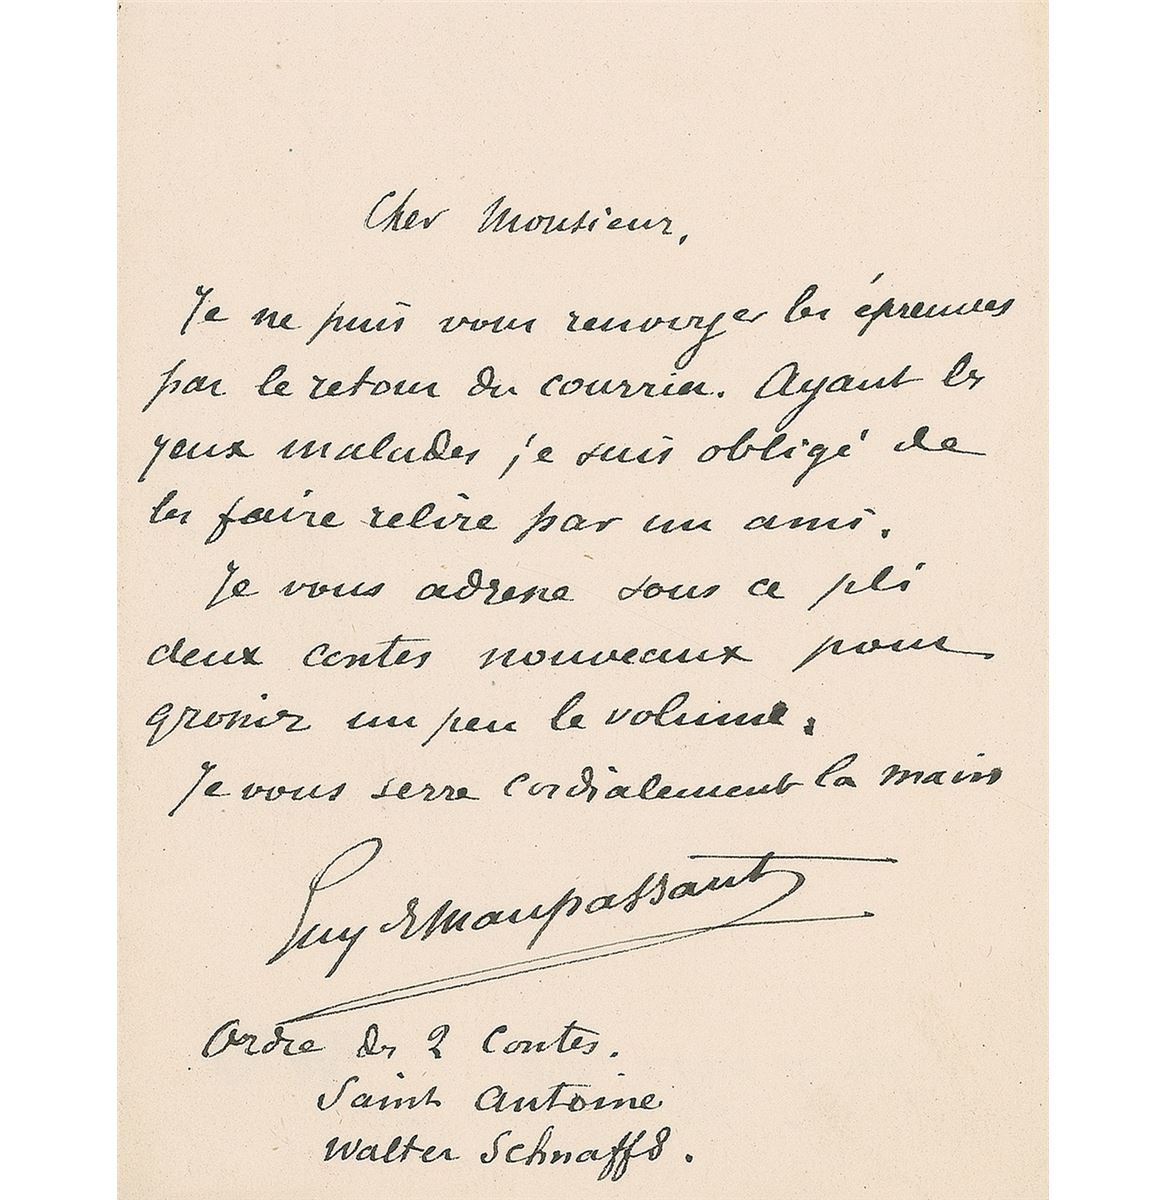 Cher Monsieur,
Je ne puis vous renvoyer les épreuves
par le retour du courrier. Ayant les
yeux malades je suis obligé de
les faire relire par un ami.
Je vous adresse sous ce pli
deux contes nouveaux pour
grossir un peu le volume.
Je vous serre cordialement la main
Guy de Maupassant
Ordre des 2 contes.
Saint Antoine
Walter Schnaffs.